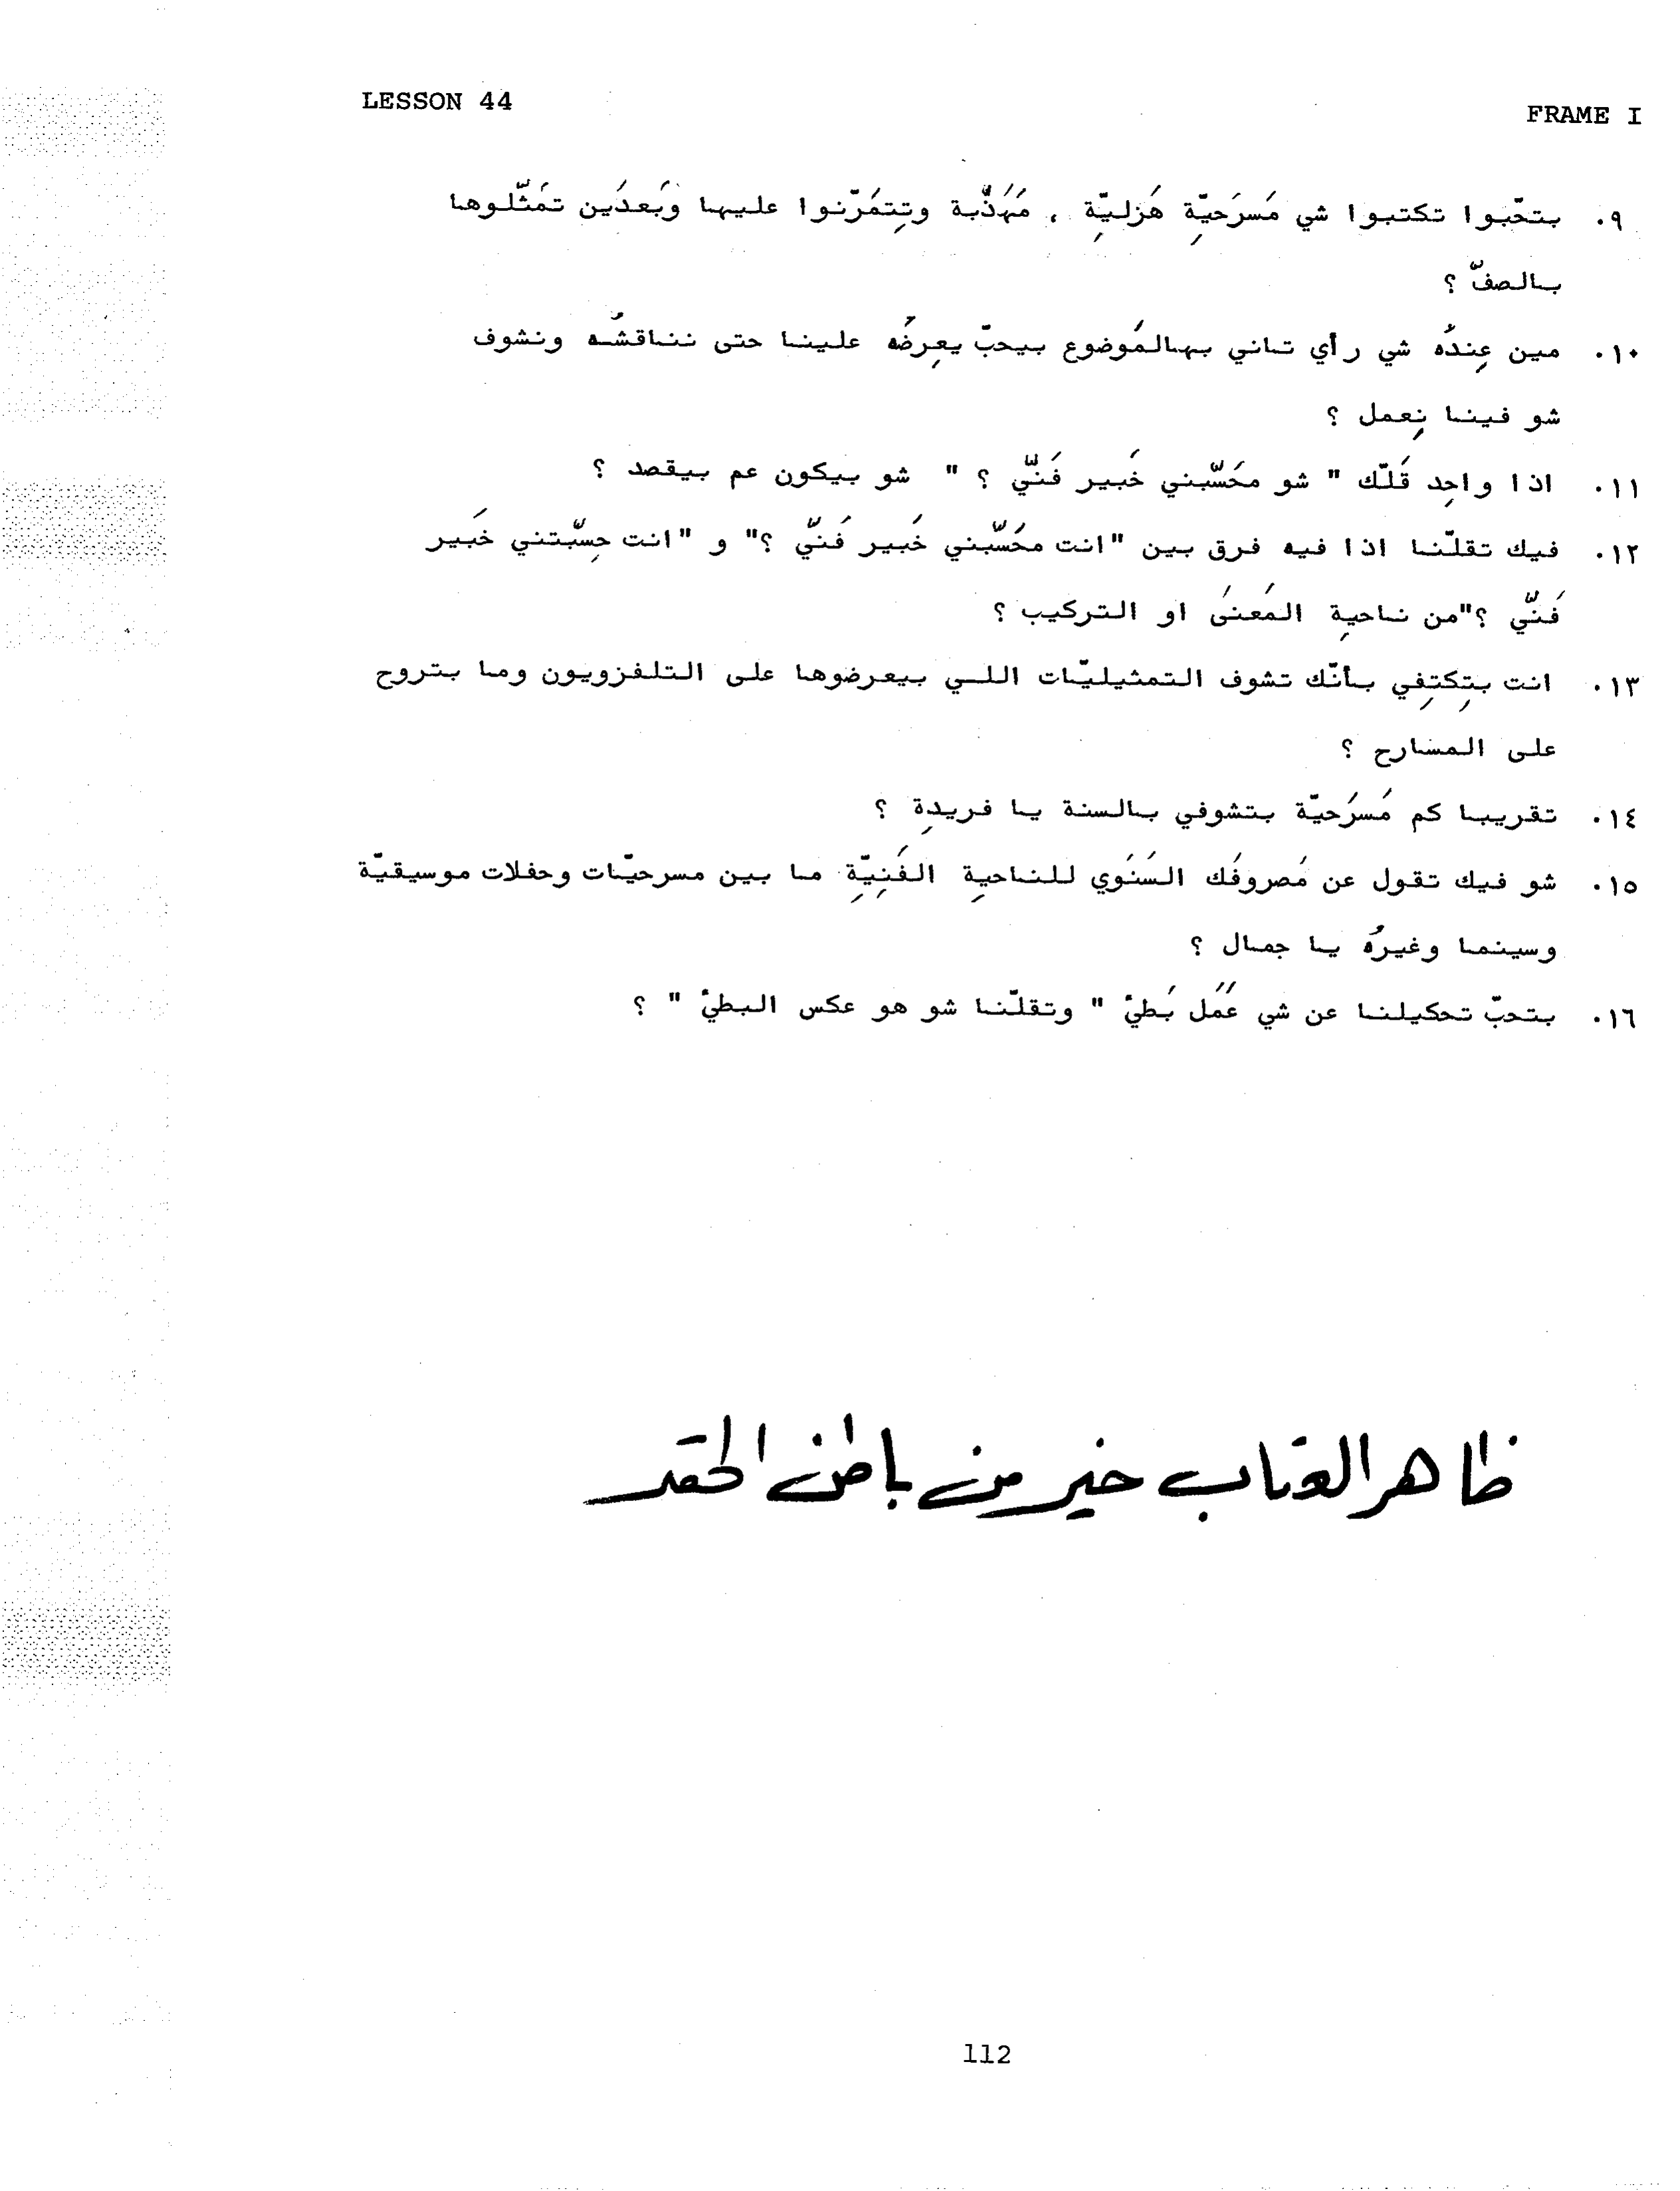 LESSON 44
FRAME I
٩. بتحّبوا تكتبوا شي مَسرَحيِّة هَزليِّة ، مَهَذّبة وتِتمَرّنوا عليها وَبعدَين تمَثّلوها
بالصفّ ؟
١٠. مين عِندُه شي رأي تاني بهالمَوضوع بيحبّ يعِرضُه علينا حتى نناقشُه ونشوف
شو فينا نِعمل ؟
١١. اذا واحِد قَلّك " شو محَسّبني خَبير فَنّي ؟ " شو بيكون عم بيقصد ؟
١٢. فيك تقلّنا اذا فيه فرق بين "انت محَسّبني خَبير فَنّي ؟" و "انت حِسّبتني خَبير
فَنّي ؟"من ناحيِة المَعنىَ او التركيب ؟
١٣. انت بتِكتِفي بأنّك تشوف التمثيليّات اللي بيعرضوها على التلفزويون وما بتروح
على المسارح ؟
١٤. تقريبا كم مَسرَحيّة بتشوفي بالسنة يا فريدِة ؟
١٥. شو فيك تقول عن مَصروفَك السَنَوي للناحيِة الفَنِيِّة ما بين مسرحيّات وحفلات موسيقيّة
وسينما وغيرُه يا جمال ؟
١٦. بتحبّ تحكيلنا عن شي عَمَل بَطيْ " وتقلّنا شو هو عكس البطيْ " ؟
ظاهر العتاب خير من باطن الحقد
112